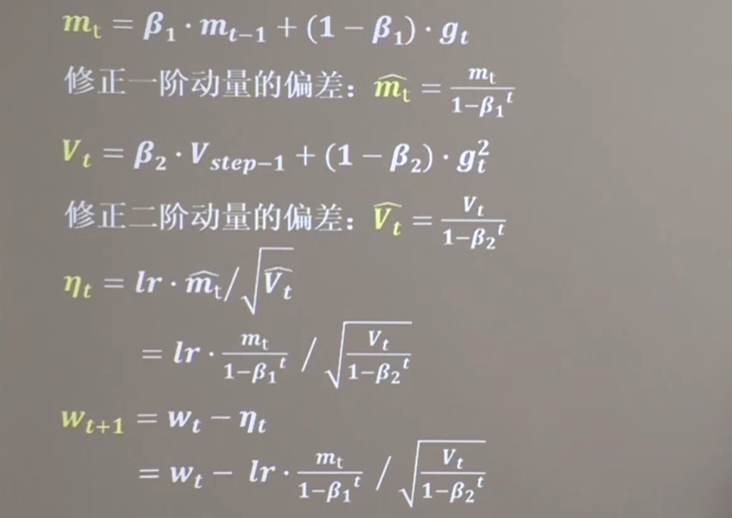 m_t = β_1 · m_{t-1} + (1 − β_1) · g_t
修正一阶动量的偏差： \widehat{m_t} = \frac{m_t}{1-β_1^t}
V_t = β_2 · V_{step-1} + (1 − β_2) · g_t^2
修正二阶动量的偏差： \widehat{V_t} = \frac{V_t}{1-β_2^t}
η_t = lr · \widehat{m_t} / \sqrt{\widehat{V_t}}
= lr · \frac{m_t}{1-β_1^t} / \sqrt{\frac{V_t}{1-β_2^t}}
w_{t+1} = w_t − η_t
= w_t − lr · \frac{m_t}{1-β_1^t} / \sqrt{\frac{V_t}{1-β_2^t}}